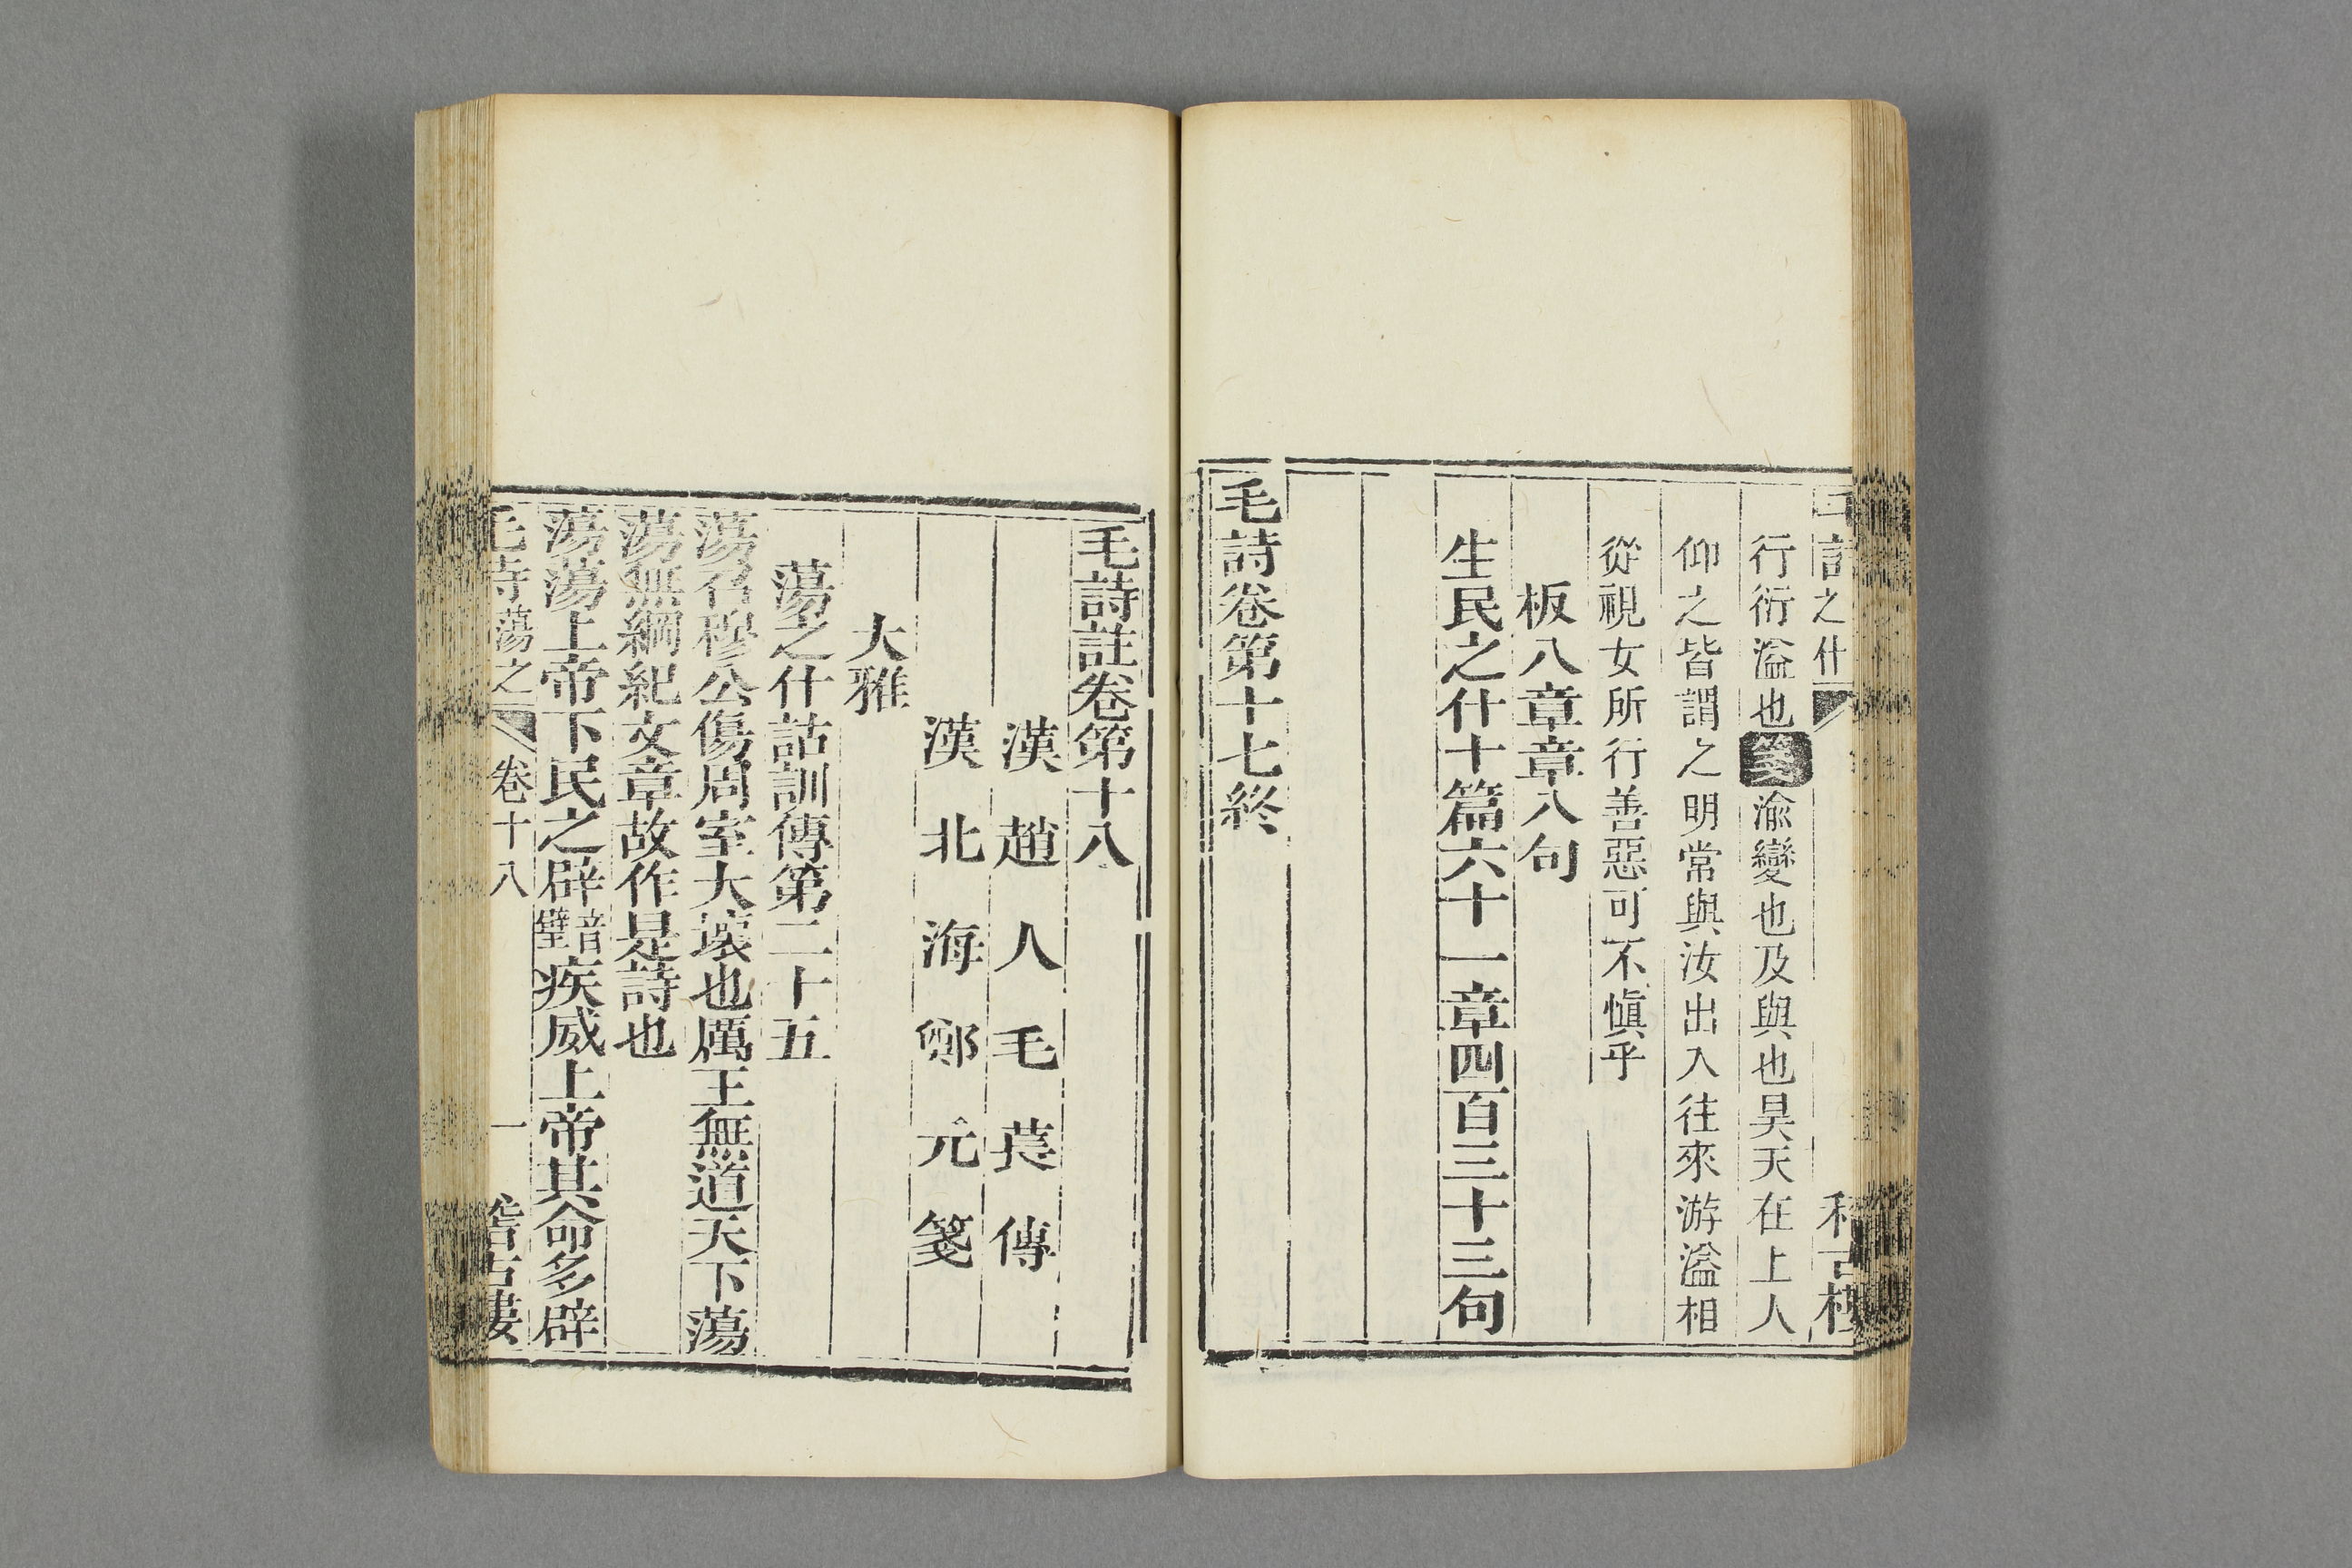 之什
行衍溢也箋渝變也及與也昊天在上人
仰之皆謂之明常與汝出入往來游溢相
從視女所行善惡可不慎乎
板八章章八句
生民之什十篇六十一章四百三十三句
毛詩卷第十七終
毛詩註卷第十八
漢趙人毛萇傳
漢北海鄭元箋
大雅
蕩之什詁訓傳第二十五
蕩召穆公傷周室大壞也厲王無道天下蕩
蕩無綱紀文章故作是詩也
蕩蕩上帝下民之辟音璧疾威上帝其命多辟
毛詩蕩之 卷十八 一